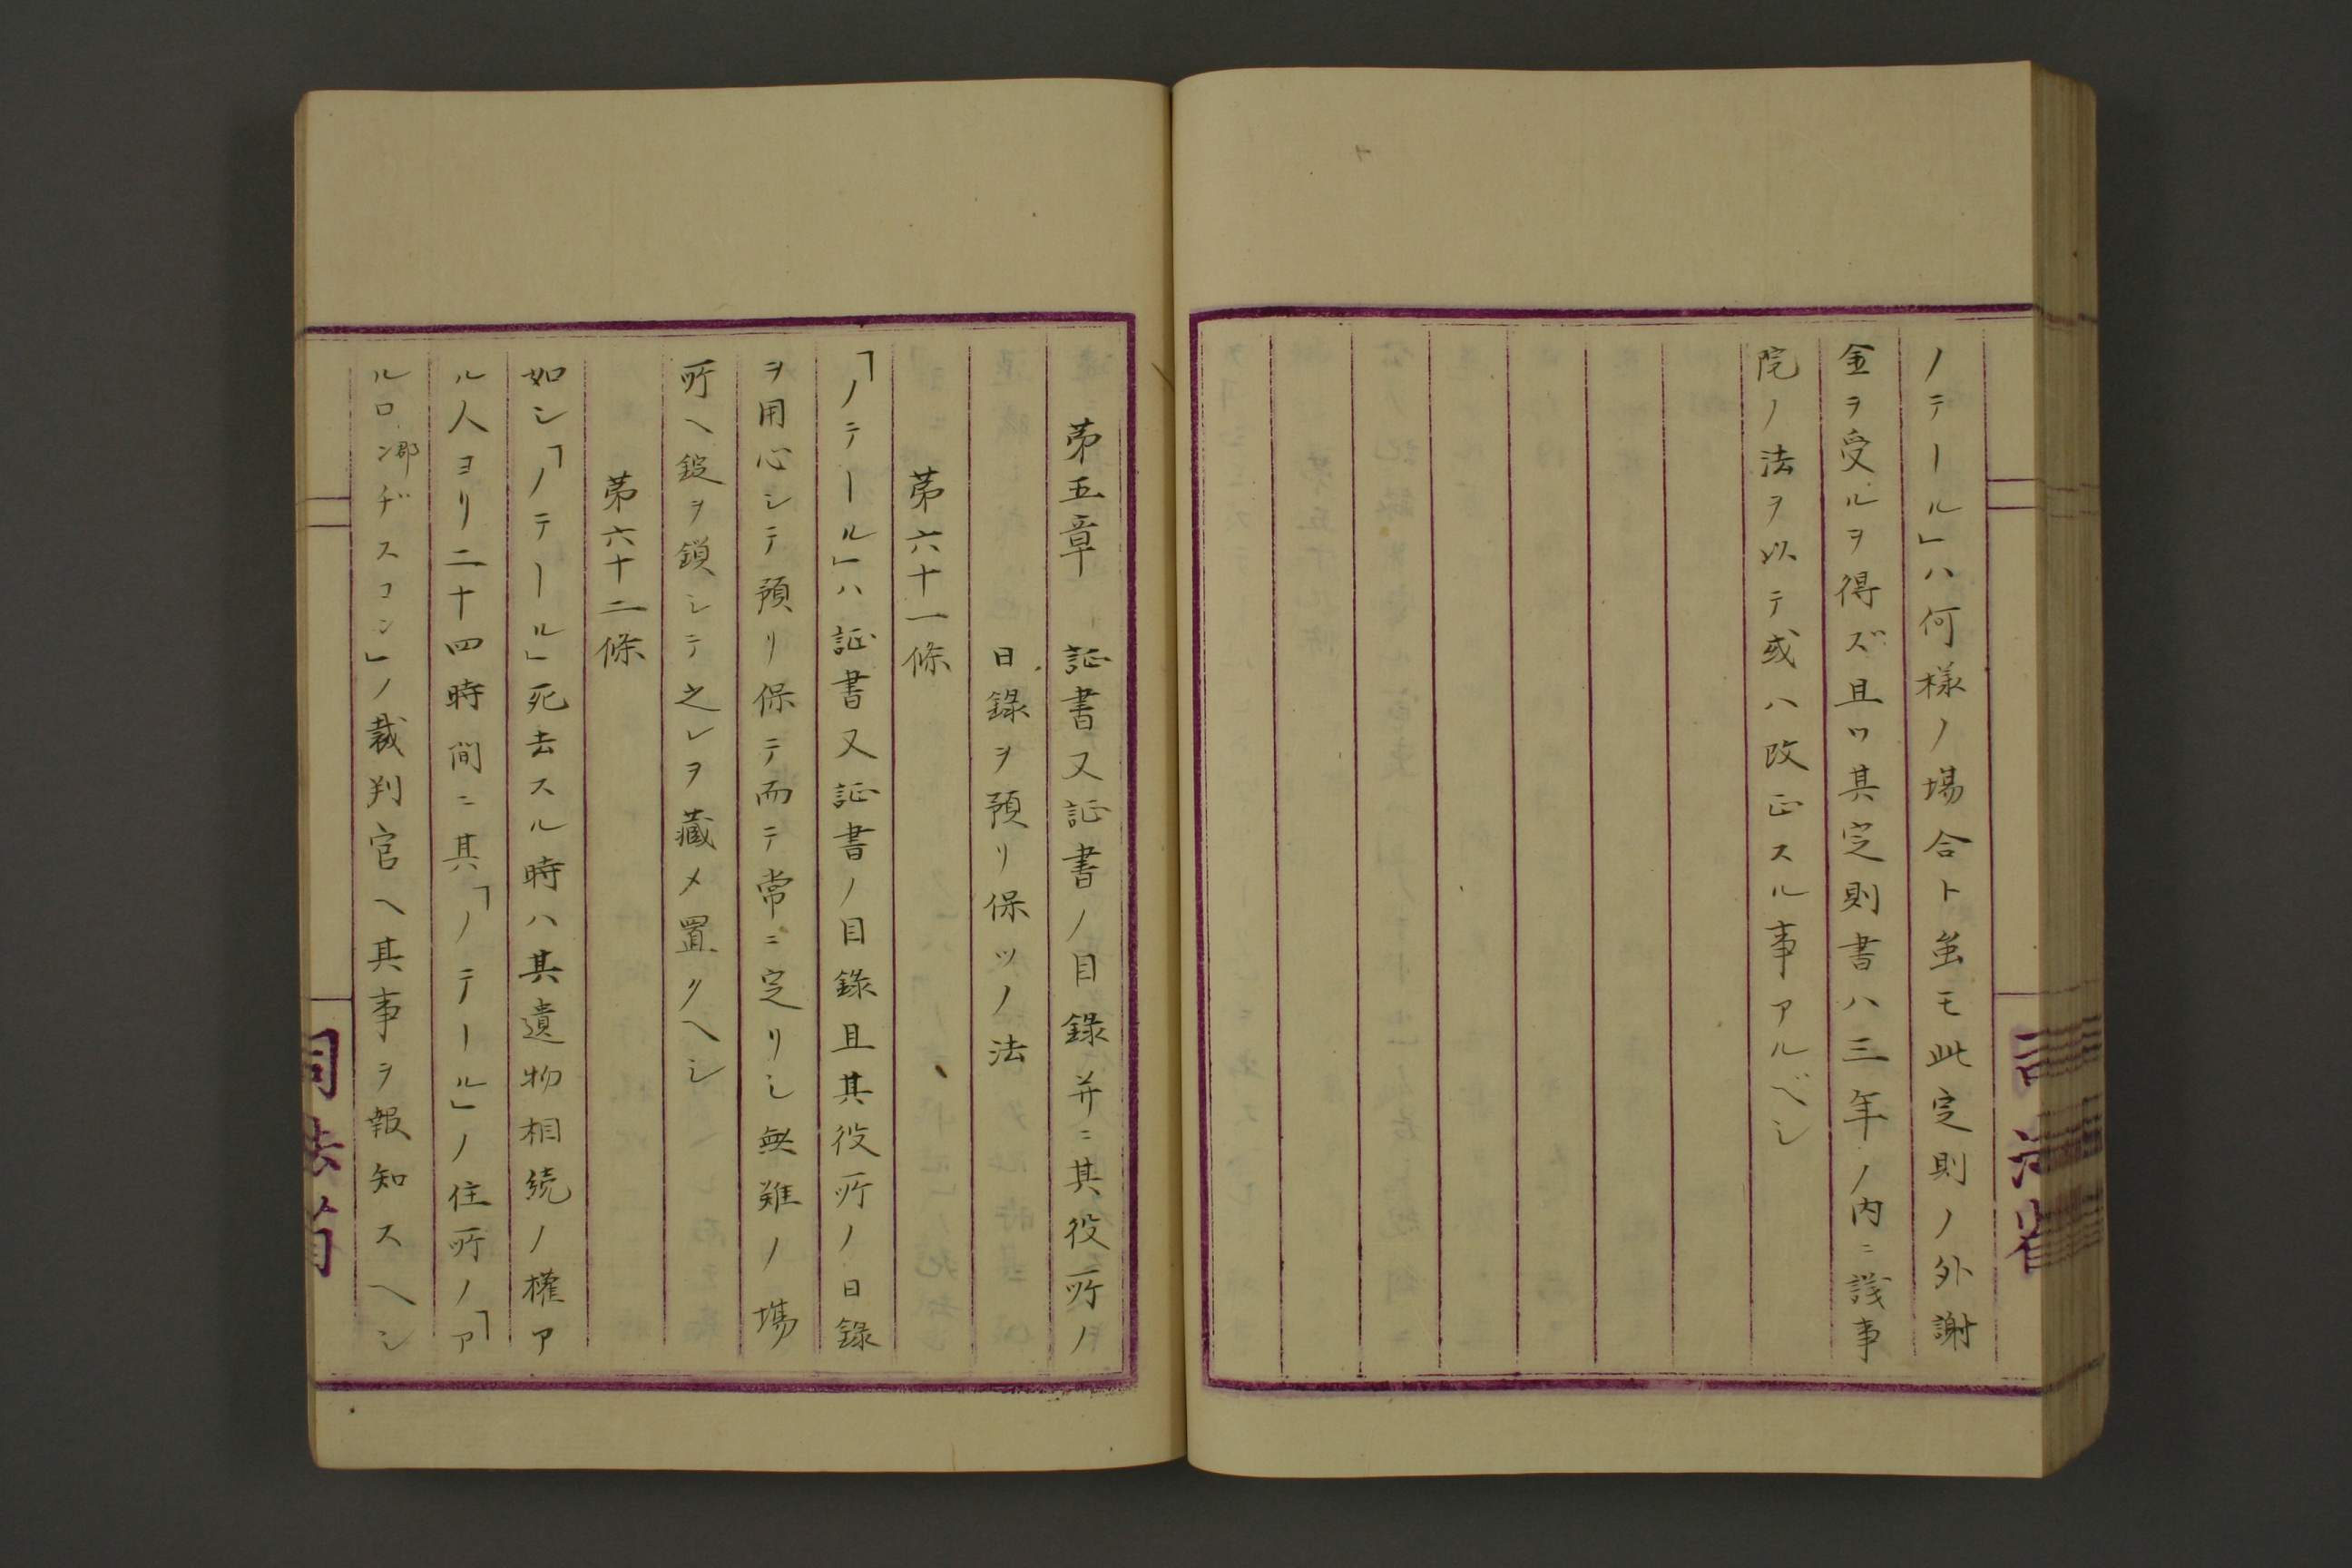 ノテール」ハ何様ノ場合ト虽モ此定則ノ外謝
金ヲ受ルヲ得ズ且ツ其定則書ハ三年ノ内ニ議事
院ノ法ヲ以テ或ハ改正スル事アルベシ
司法省
第五章 証書又証書ノ目録并ニ其役所ノ
日録ヲ預リ保ツノ法
第六十一條
「ノテール」ハ証書又証書ノ目録且其役所ノ日録
ヲ用心シテ預リ保テ而テ常ニ定リシ無難ノ場
所ヘ錠ヲ鎖シテ之レヲ藏メ置クヘシ
第六十二條
如シ「ノテール」死去スル時ハ其遺物相続ノ權ア
ル人ヨリ二十四時間ニ其「ノテール」ノ住所ノ「ア
ルロンヂスコン」ノ裁判官ヘ其事ヲ報知スヘシ
郡
司法省